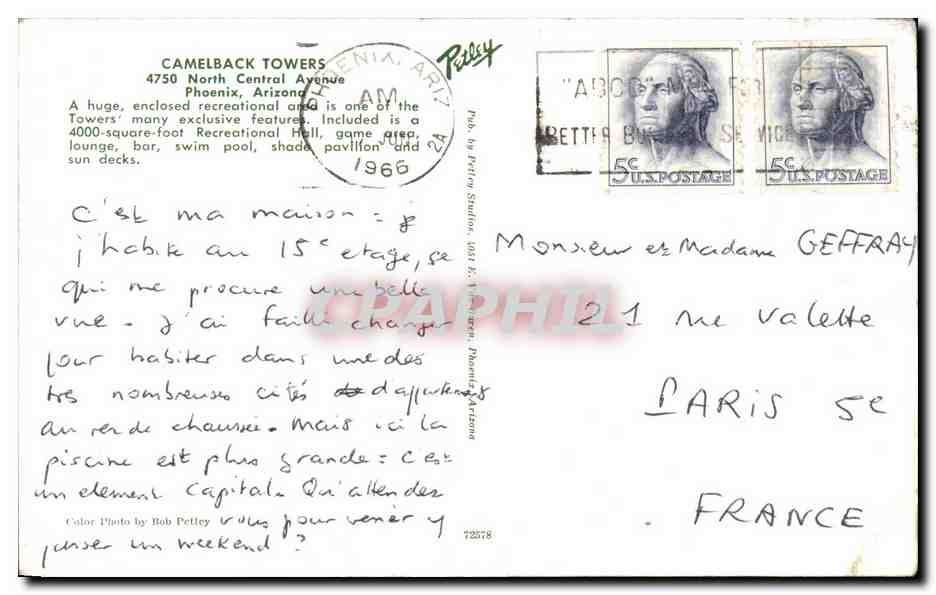 CAMELBACK TOWERS
4750 North Central Avenue
Phoenix, Arizona
A huge, enclosed recreational area is one of the
Towers' many exclusive features. Included is a
4000-square-foot Recreational Hall, game area,
lounge, bar, swim pool, shade pavilion and
sun decks.
Petley
PHOENIX, ARIZ
AM
1966
2A
"ABCD" MAIL FOR
BETTER BUSINESS SERVICE
5c
U.S.POSTAGE
5c
U.S.POSTAGE
c'est ma maison = j
j'habite au 15e etage, ce
qui me procure une belle
vue. J'ai failli changer
pour habiter dans une des
tres nombreuses cités d'appartements
au rez de chaussée. Mais ici la
piscine est plus grande = c'est
un element capital. Qu'attendez
vous pour venir y
passer un weekend ?
Color Photo by Bob Petley
Pub. by Petley Studios, 4051 E. Van Buren, Phoenix, Arizona
72578
Monsieur et Madame GEFFRAY
21 rue Valette
PARIS 5e
FRANCE
CPAPHIL